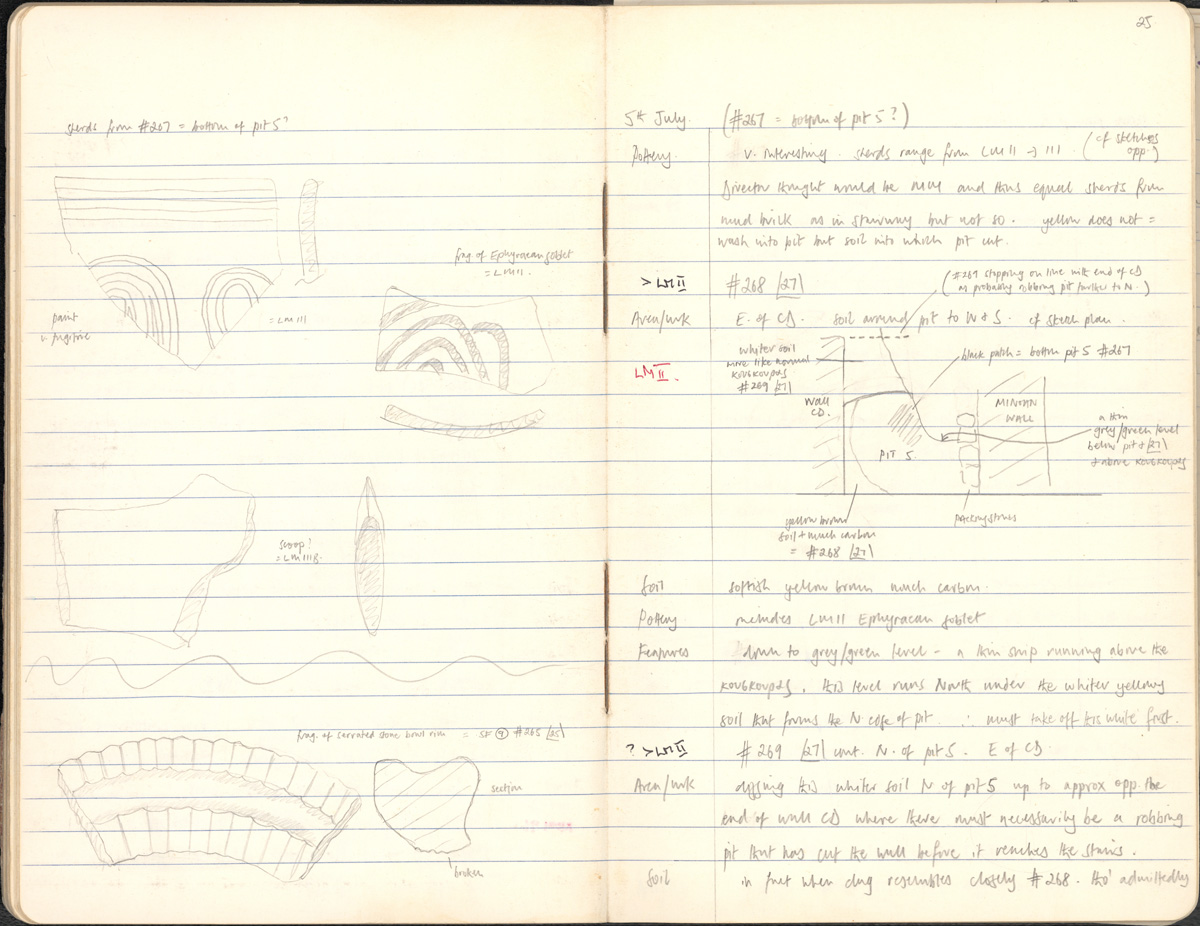 sherds from #267 = bottom of pit 5?
frag. of Ephyraean goblet
= LM II.
paint
v. fugitive
= LM III
scoop?
= LM III B.
frag. of serrated stone bowl rim = SF 9 #265 [25]
section
broken
25
5th July. (#267 = bottom of pit 5?)
Pottery. v. interesting. sherds range from LM II → III. (cf sketches
opp.)
Director thought would be and thus equal sherds from
mud brick as in stairway but not so. yellow does not =
wash into pit but soil into which pit cut.
> LM II #268 [27] (#267 stopping on line with end of CD
as probably robbing pit further to N.)
Area/wk E. of CD. soil around pit to W & S. cf sketch plan.
LM II.
whiter soil
more like normal
κουσκουρας
#269 [27]
black patch = bottom pit 5 #267
Wall
CD.
MINOAN
WALL
PIT 5.
a thin
grey/green level
below pit & [27]
& above κουσκουρας
yellow brown
soil + much carbon
= #268 [27]
packing stones
Soil softish yellow brown much carbon.
Pottery includes LM II Ephyraean goblet
Features down to grey/green level - a thin strip running above the
κουσκουρας. this level runs North under the whiter yellowy
soil that forms the N. edge of pit. ∴ must take off this white first.
? > LM II #269 [27] cont. N. of pit 5. E of CD.
Area/wk digging this whiter soil N of pit 5 up to approx opp. the
end of wall CD where there must necessarily be a robbing
pit that has cut the wall before it reaches the stairs.
Soil in fact when dug resembles closely #268. tho' admittedly